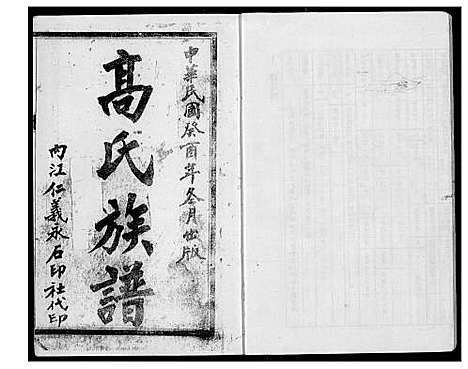 中華民國癸酉年冬月出版
高氏族譜
內江仁義永石印社代印